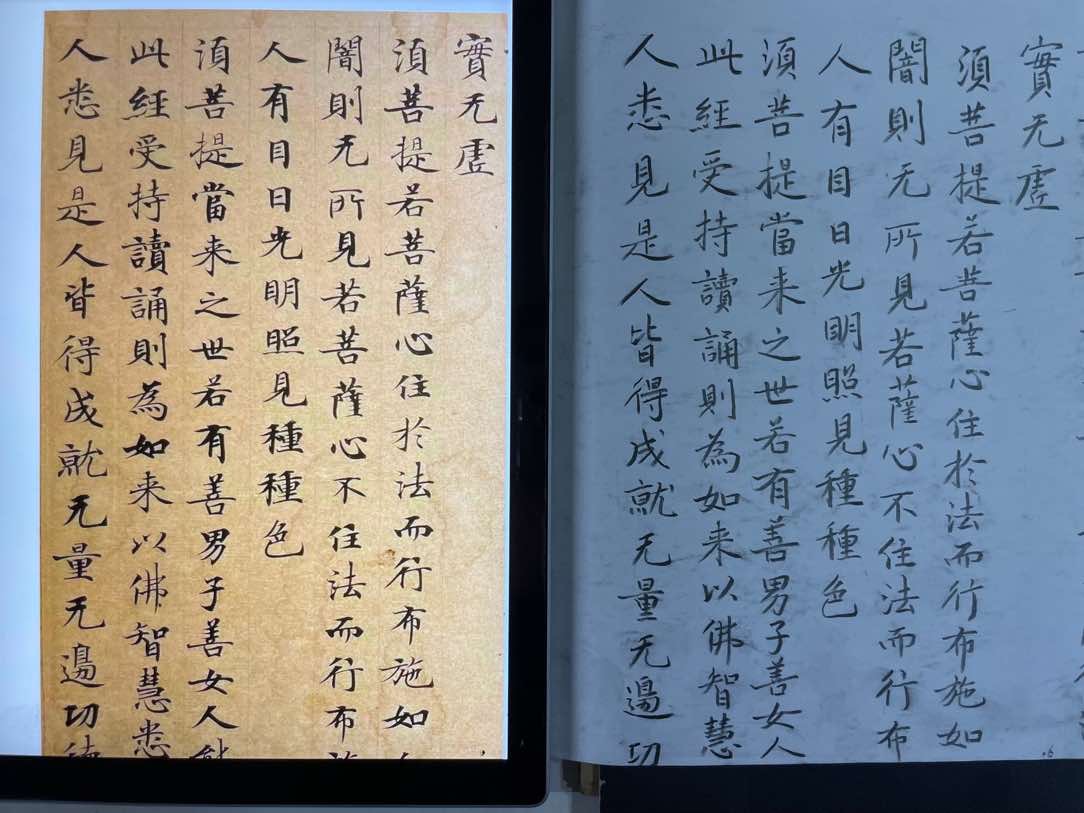 實无虛
須菩提若菩薩心住於法而行布施如
闇則无所見若菩薩心不住法而行布
人有目日光明照見種種色
須菩提當来之世若有善男子善女人能
此經受持讀誦則為如来以佛智慧悉
人悉見是人皆得成就无量无邊功德
實无虛
須菩提若菩薩心住於法而行布施如
闇則无所見若薩心不住法而行布
人有目日光明照見種種色
須菩提當来之世若有善男子善女人
此經受持讀誦則為如来以佛智慧
人悉見是人皆得成就无量无邊功